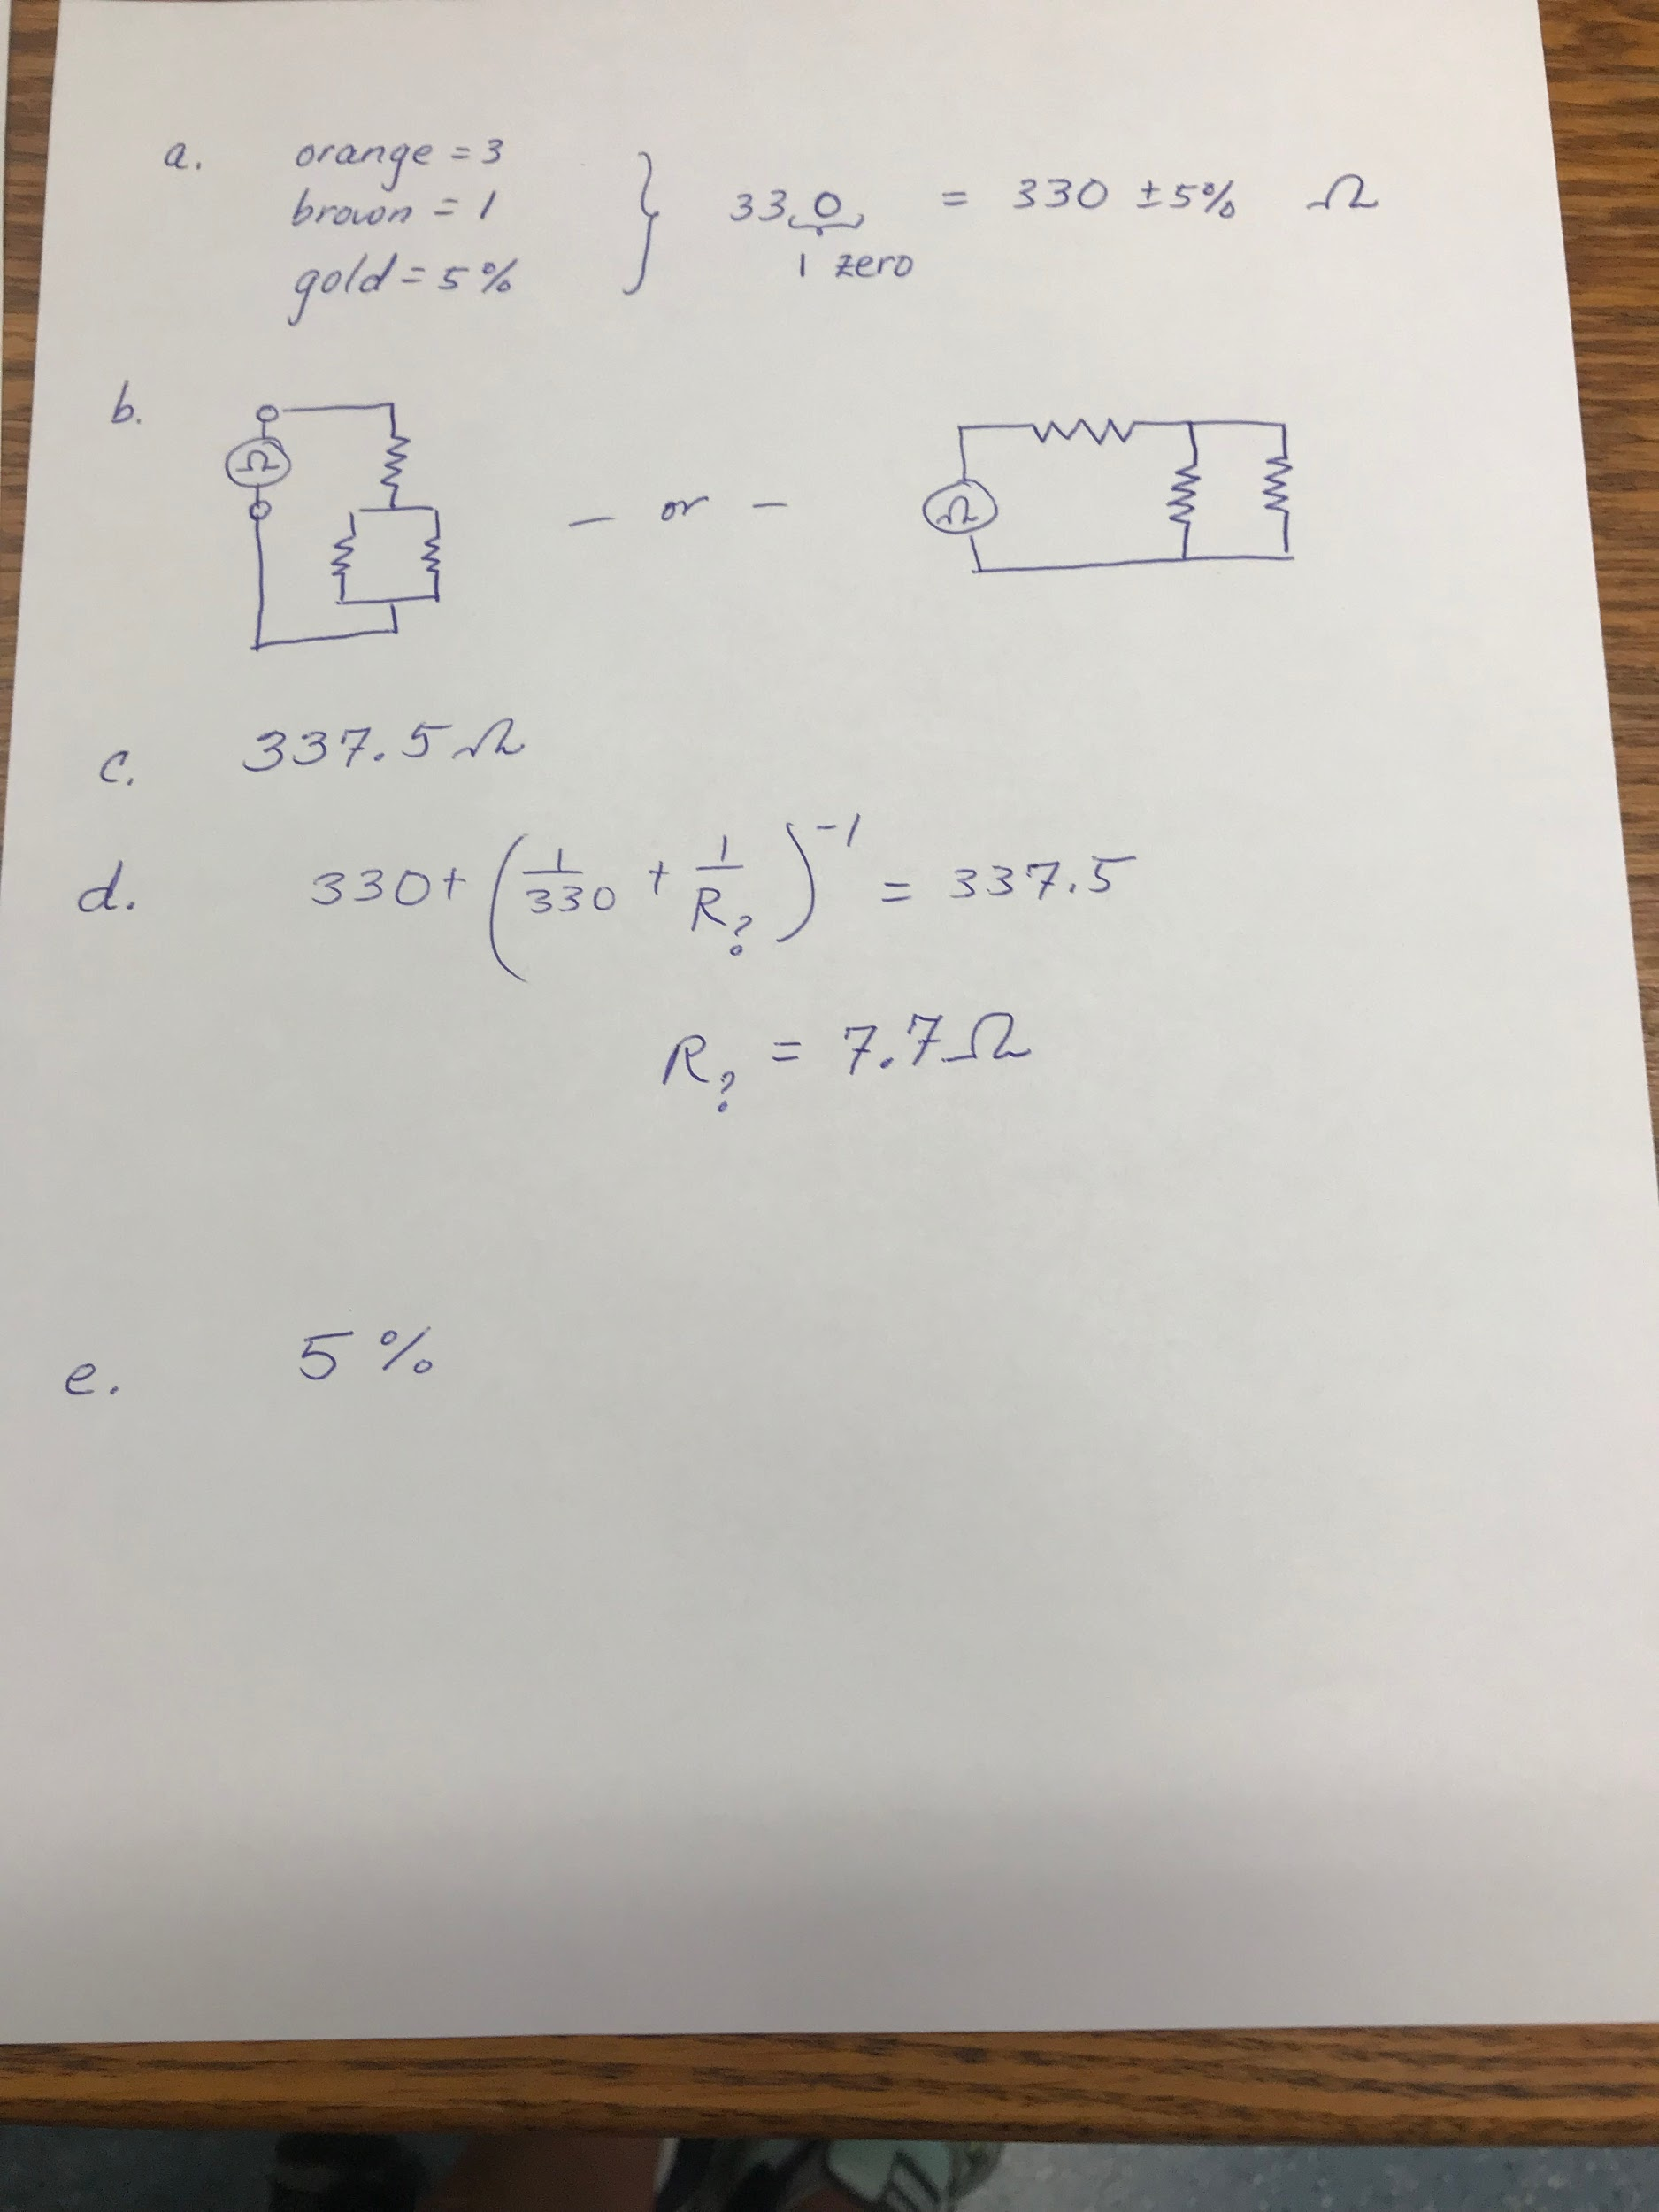 a. orange = 3
brown = 1
gold = 5%
} 330 = 330 ±5% Ω
1 zero
b. Ω - or - Ω
c. 337.5Ω
d. 330 + (1/330 + 1/R?)^-1 = 337.5
R? = 7.7Ω
e. 5%